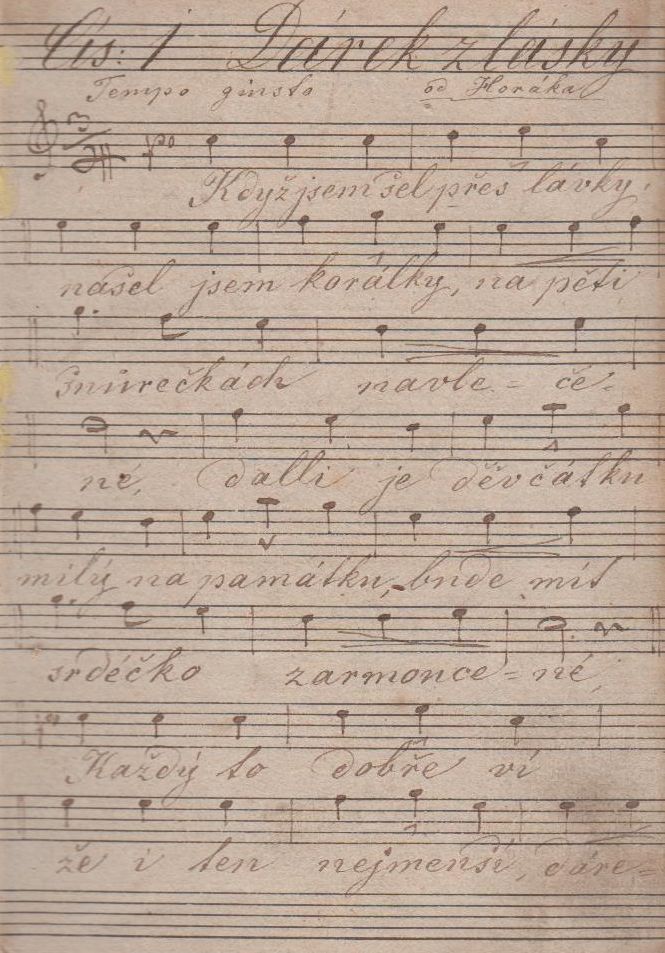 Čís: 1 Dárek z lásky
Tempo giusto od Horáka
po
Když jsem šel přes lávky,
našel jsem korálky, na pěti
šnůrečkách navle = če-
né, dalli je děvčátku
milý na památku, bude mít
srdéčko zarmouce = né,
Každý to dobře ví
že i ten nejmenší, dáre=